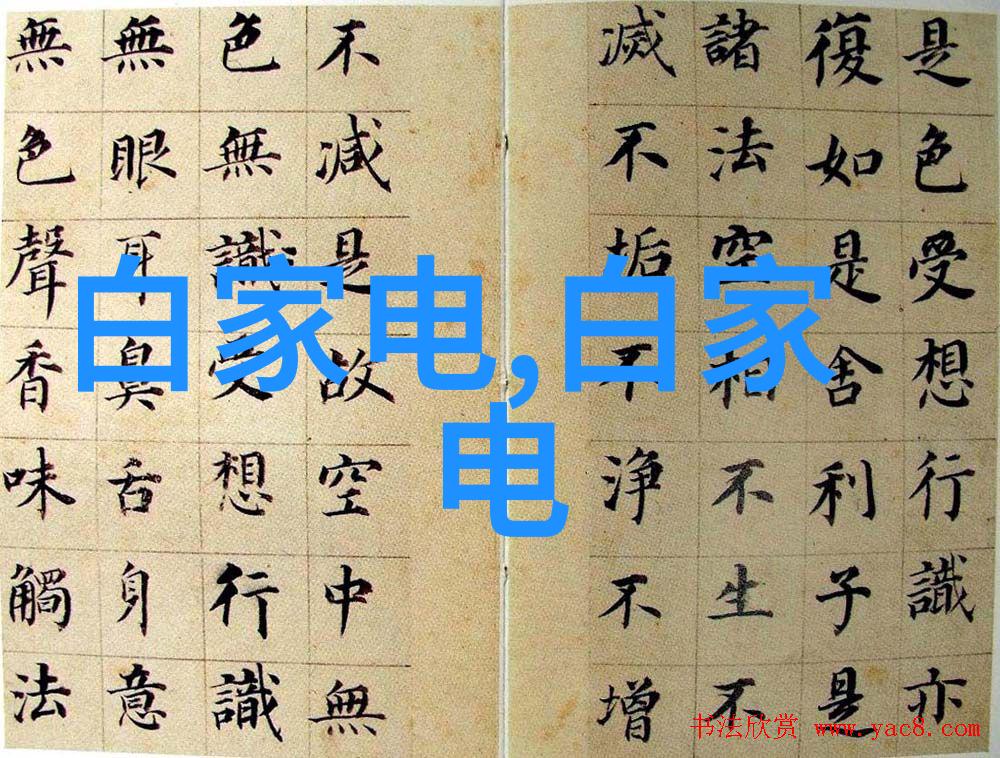 是色受想行識亦
復如是舍利子是
諸法空相不生不
滅不垢不淨不增
不減是故空中無
色無識受想行識
無眼耳鼻舌身意
無色聲香味觸法
白家电,白家
电
书法欣赏 www.yac8.com